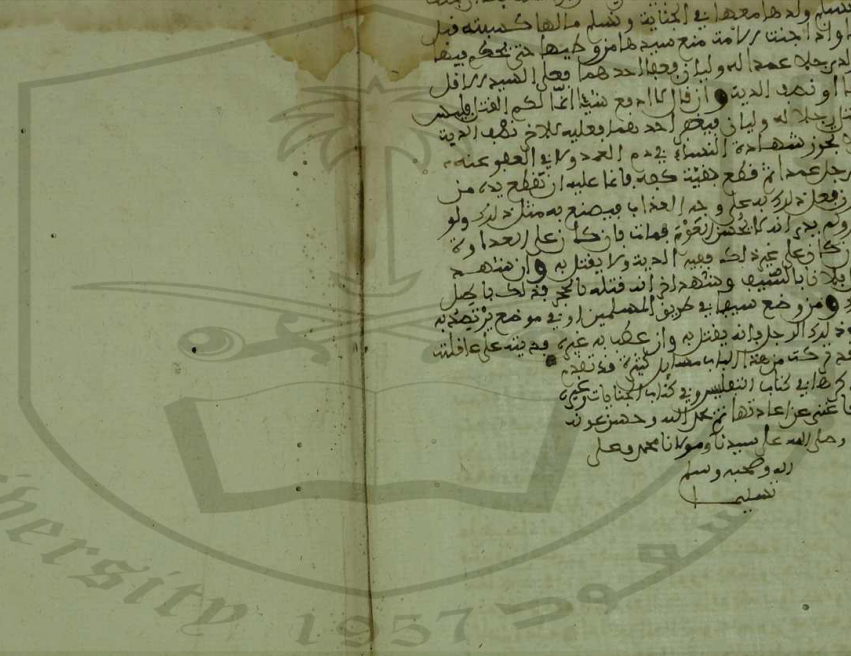 يسلم ولدها معها في الجناية وتسلم مالها كسبته قبل
واذا جنت الامة منع سيدها من وطيها حتى يحكم فيها
رجلا عمدا له وليان فعفا احدهما فعلى السيد الاقل
او نصف الدية وان قال لا ادفع شيئا انما لكم القتل فليس
رجلا له وليان فيعفو احدهما فعليه للاخر نصف الدية
تجوز شهادة النساء في دم العمد ولا في العفو عنه
رجل عمدا ثم قطع بقية كفه فانما عليه ان تقطع يده من
فعل ذلك به على وجه العذاب فيصنع به مثل ذلك ولو
ولم يدر انه لا يحسن العوم فمات فان كان على العداوة
كان على غير ذلك ففيه الدية ولا يقتل به وان شهد
فلانا بالسيف وشهد اخر انه قتله بالحجر فذلك باطل
ومن وضع سيفا في طريق المسلمين او في موضع يرتصد به
ذلك الرجل فانه يقتل به وان عطب به غيره فديته على عاقلته
تركت من هذا الباب مسايل كثيرة قد تقدم
ذكرها في كتاب التفليس وفي كتاب الجنايات وغيره
فاغنى عن اعادتها تم بحمد الله وحسن عونه
وصلى الله على سيدنا ومولانا محمد وعلى
اله وصحبه وسلم
تسليما
جامعة الملك سعود
University 1957